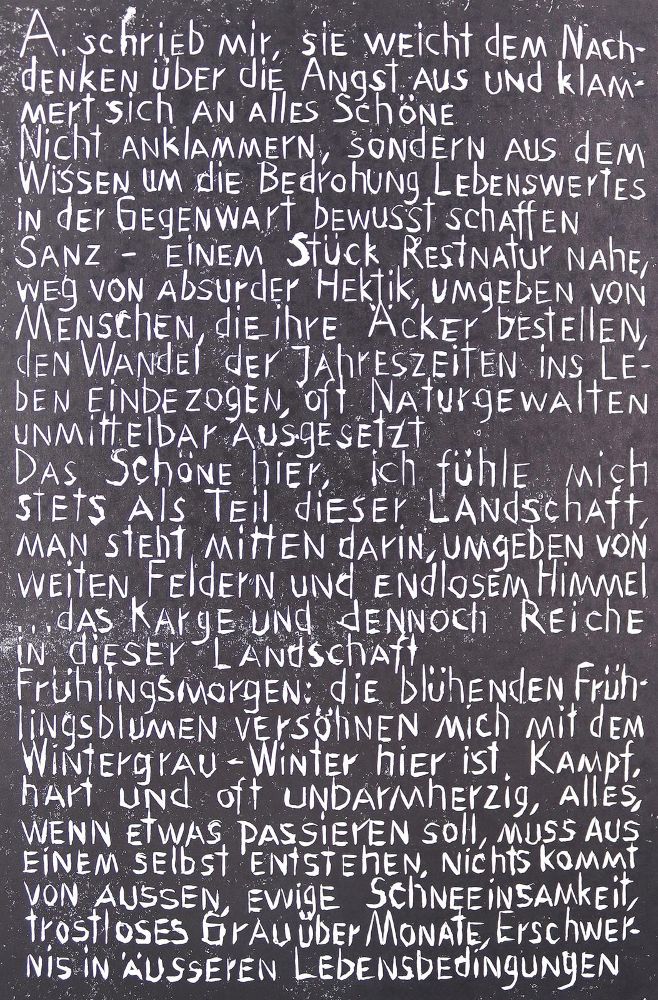 A. schrieb mir, sie weicht dem Nach-
denken über die Angst aus und klam-
mert sich an alles Schöne
Nicht anklammern, sondern aus dem
Wissen um die Bedrohung Lebenswertes
in der Gegenwart bewusst schaffen
Sanz - einem Stück Restnatur nahe,
weg von absurder Hektik, umgeben von
Menschen, die ihre Äcker bestellen,
den Wandel der Jahreszeiten ins Le-
ben einbezogen, oft Naturgewalten
unmittelbar ausgesetzt
Das Schöne hier, ich fühle mich
stets als Teil dieser Landschaft,
man steht mitten darin, umgeben von
weiten Feldern und endlosem Himmel
...das Karge und dennoch Reiche
in dieser Landschaft
Frühlingsmorgen: die blühenden Früh-
lingsblumen versöhnen mich mit dem
Wintergrau - Winter hier ist Kampf,
hart und oft unbarmherzig, alles,
wenn etwas passieren soll, muss aus
einem selbst entstehen, nichts kommt
von aussen, ewige Schneeinsamkeit,
trostloses Grau über Monate, Erschwer-
nis in äusseren Lebensbedingungen